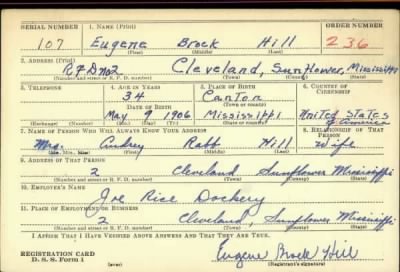 SERIAL NUMBER 1. NAME (Print) ORDER NUMBER
107 Eugene Brock Hill 236
(First) (Middle) (Last)
2. ADDRESS (Print)
RFD No2 Cleveland, Sunflower, Mississippi
(Number and street or R. F. D. number) (Town) (County) (State)
3. TELEPHONE 4. AGE IN YEARS 5. PLACE OF BIRTH 6. COUNTRY OF CITIZENSHIP
34 Canton
DATE OF BIRTH (Town or county)
May 9 1906 Mississippi United States of America
(Exchange) (Number) (Mo.) (Day) (Yr.) (State or country)
7. NAME OF PERSON WHO WILL ALWAYS KNOW YOUR ADDRESS 8. RELATIONSHIP OF THAT PERSON
Mrs. Audrey Rabb Hill Wife
(Mr., Mrs., Miss) (First) (Middle) (Last)
9. ADDRESS OF THAT PERSON
2 Cleveland Sunflower Mississippi
(Number and street or R. F. D. number) (Town) (County) (State)
10. EMPLOYER'S NAME
Joe Rice Dockery
11. PLACE OF EMPLOYMENT OR BUSINESS
2 Cleveland, Sunflower Mississippi
(Number and street or R. F. D. number) (Town) (County) (State)
I AFFIRM THAT I HAVE VERIFIED ABOVE ANSWERS AND THAT THEY ARE TRUE.
REGISTRATION CARD
D. S. S. Form 1 Eugene Brock Hill
(over) (Registrant's signature)